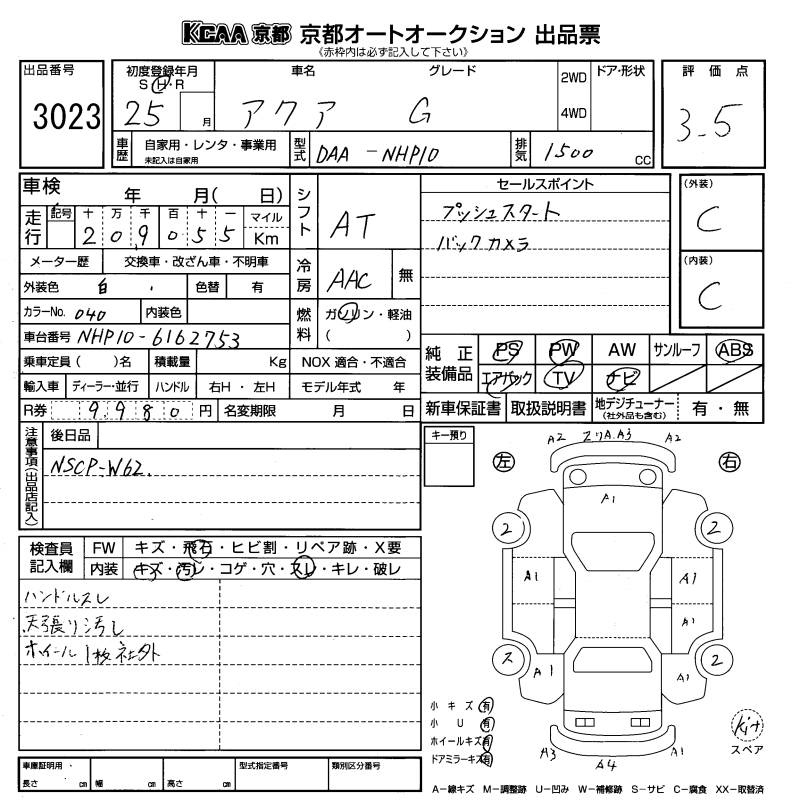 KCAA 京都 京都オートオークション 出品票
《赤枠内は必ず記入して下さい》
出品番号
3023
初度登録年月
S・H・R
25 月
車名 グレード
アクア G
2WD
4WD
ドア・形状
評価点
3.5
車歴
自家用・レンタ・事業用
未記入は自家用
型式
DAA-NHP10
排気
1500 CC
車検 年 月( 日)
走行
記号 十 万 千 百 十 一 マイル
209055 Km
シフト
AT
セールスポイント
プッシュスタート
バックカメラ
(外装)
C
(内装)
C
メーター歴 交換車・改ざん車・不明車
外装色 白 色替 有
冷房
AAC 無
カラーNo. 040 内装色
燃料
ガソリン・軽油
( )
車台番号 NHP10-6162753
乗車定員( )名 積載量 Kg NOX 適合・不適合
輸入車 ディーラー・並行 ハンドル 右H・左H モデル年式 年
R券 9980円 名変期限 月 日
純正装備品
PS PW AW サンルーフ ABS
エアバック TV ナビ
新車保証書 取扱説明書 地デジチューナー(社外品も含む) 有・無
注意事項(出品店記入)
後日品
NSCP-W62.
キー預り
検査員記入欄
FW キズ・飛石・ヒビ割・リペア跡・X要
内装 キズ・汚レ・コゲ・穴・スレ・キレ・破レ
ハンドルスレ
天張り汚し
ホイール1枚社外
A2 A3 A2
左 右
A1
2 2
A1 A1
A1
ス A1 A1 2
A3 A4 A1
小キズ 有
小U 有
ホイールキズ 有
ドアミラーキズ 有
Kit
スペア
車庫証明用・
長さ cm 幅 cm 高さ cm
型式指定番号 類別区分番号
A-線キズ M-調整跡 U-凹み W-補修跡 S-サビ C-腐食 XX-取替済